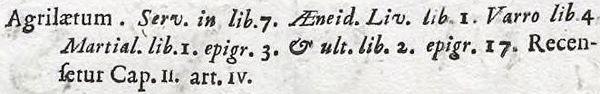 Agrilætum. Serv. in lib. 7. Æneid. Liv. lib. 1. Varro lib. 4
Martial. lib. 1. epigr. 3. & ult. lib. 2. epigr. 17. Recen-
ſetur Cap. II. art. IV.